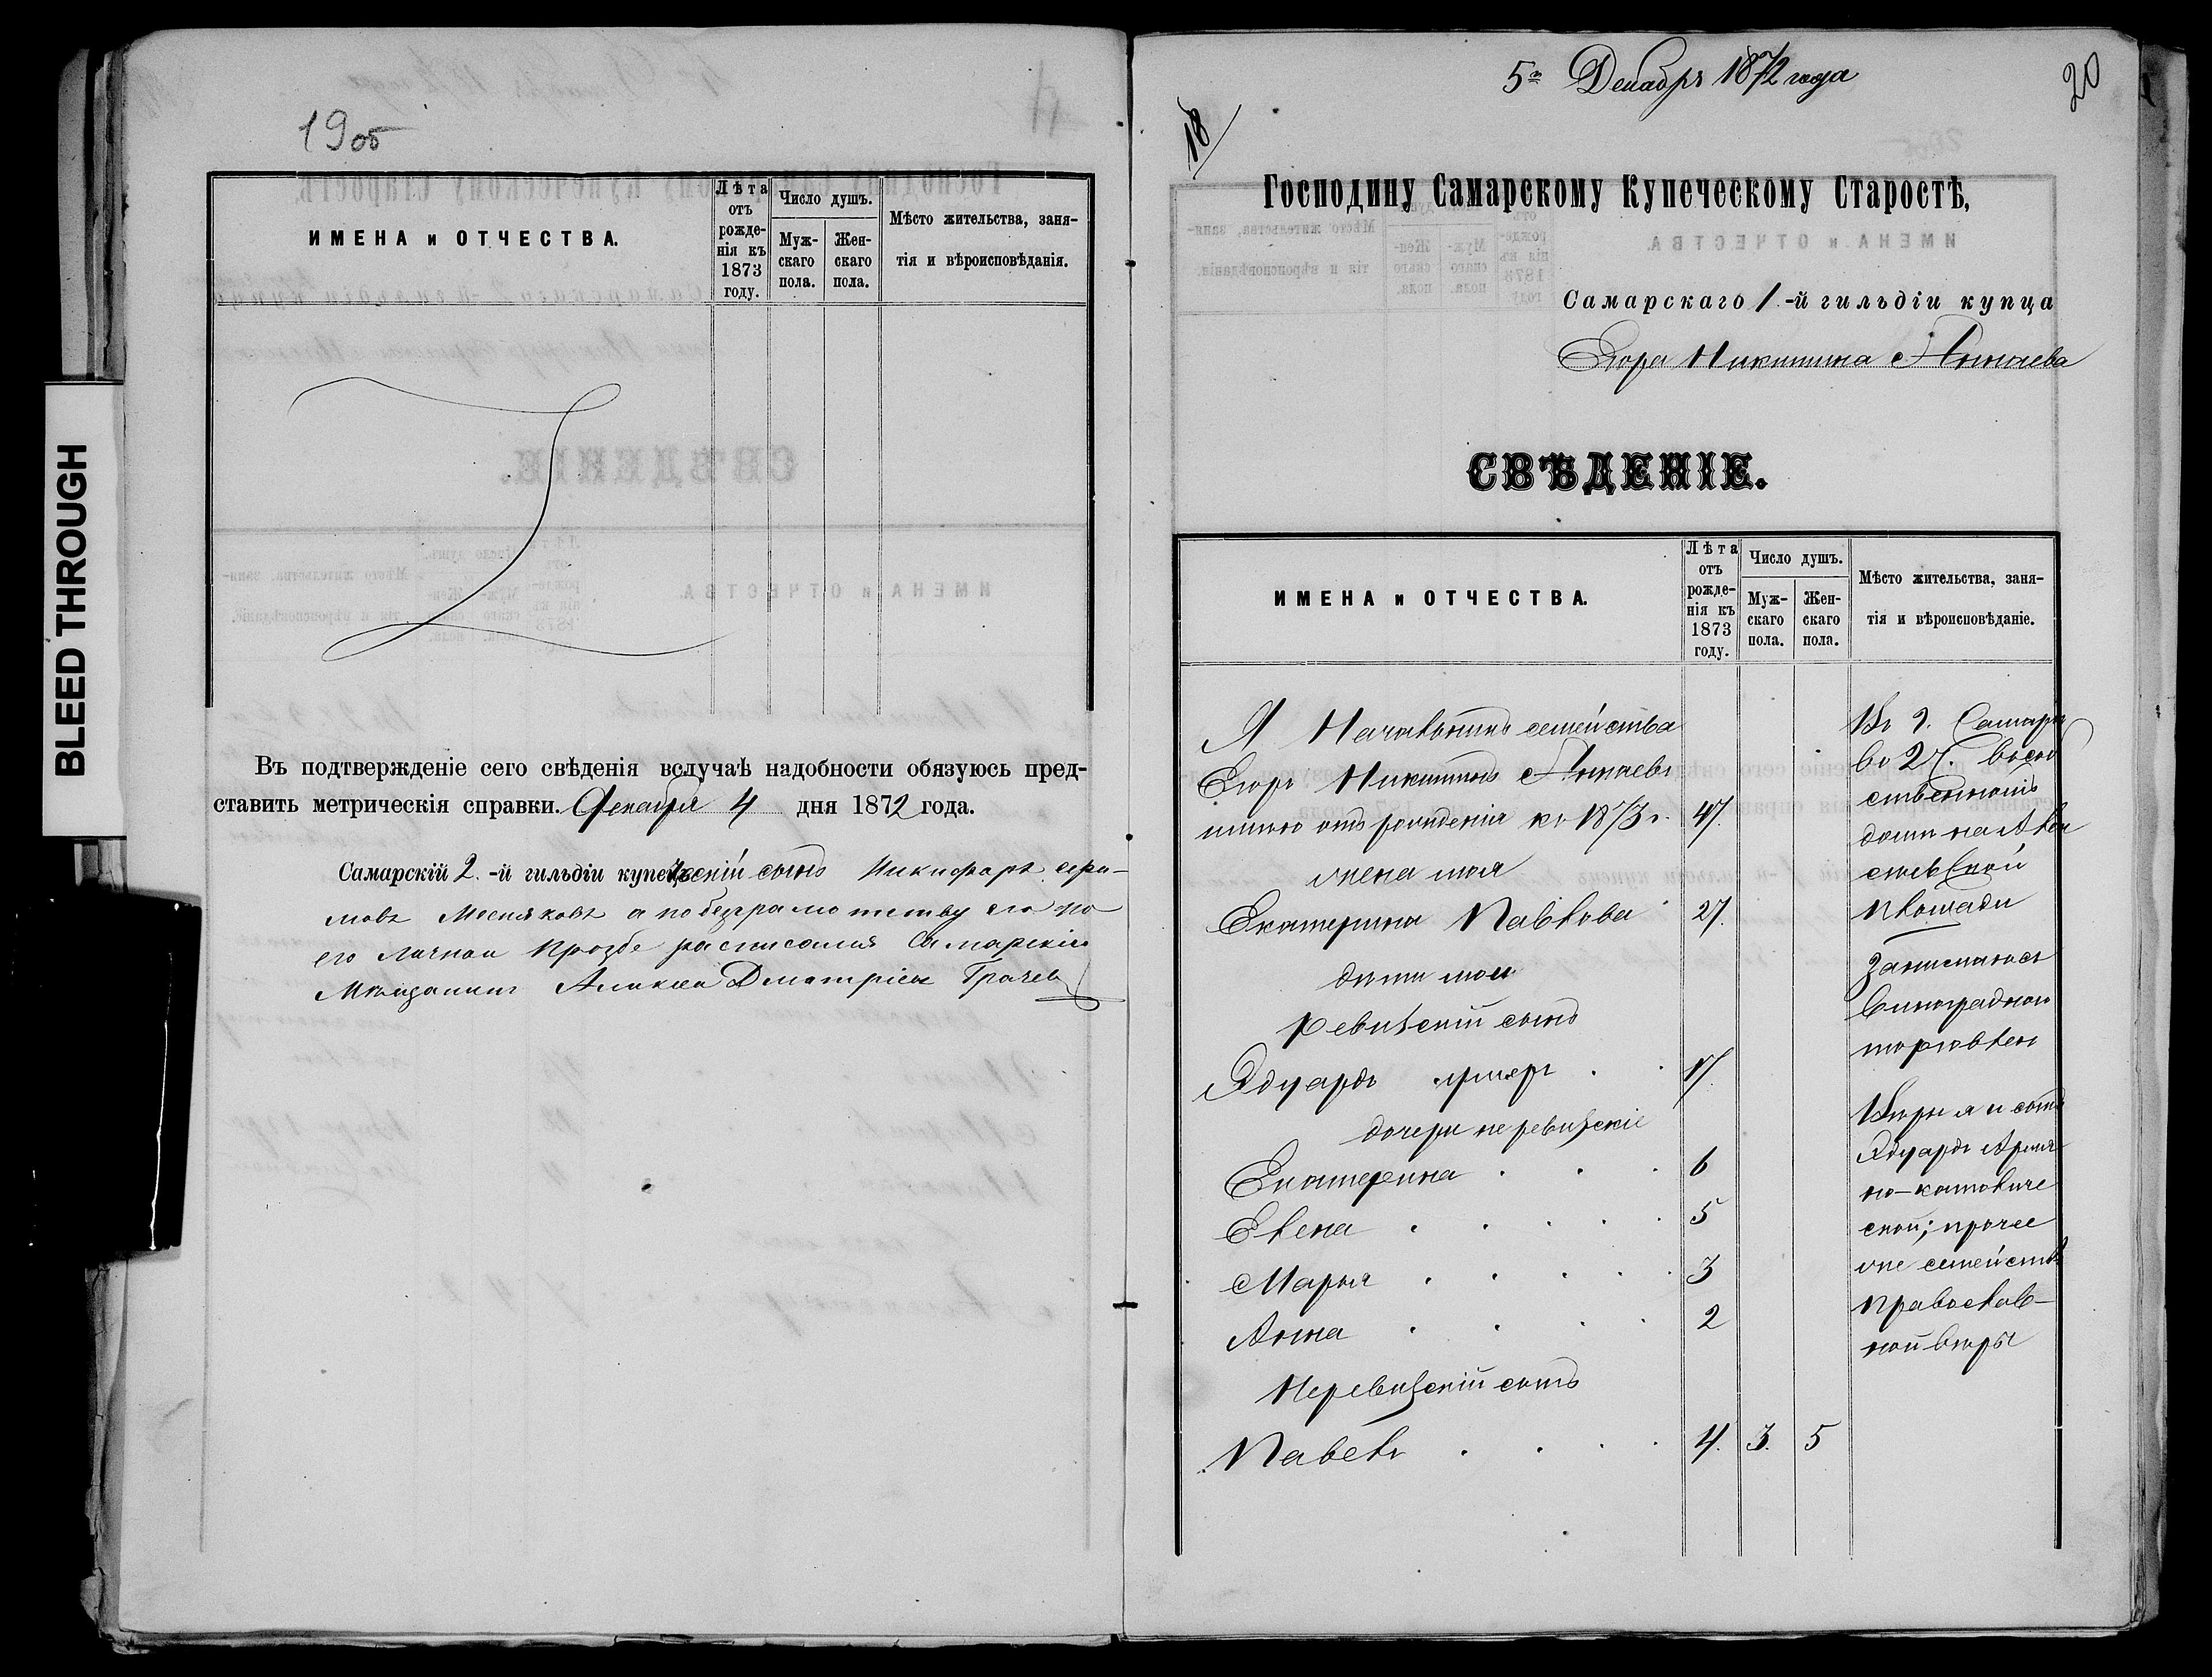 BLEED THROUGH
19об
ИМЕНА и ОТЧЕСТВА.
Лѣта отъ рожденія къ 1873 году.
Число душъ.
Мужскаго пола.
Женскаго пола.
Мѣсто жительства, занятія и вѣроисповѣданія.
Въ подтвержденіе сего свѣденія вслучаѣ надобности обязуюсь пред-
ставить метрическія справки. Декабря 4 дня 1872 года.
Самарскій 2.-й гильдіи купеческій сынъ Никифаръ
а по безграмотству его по
его личной прозбе расписался Самарскій
Мещанинъ Алексей Дмитріевъ Грачев
5го Декабря 1872 года
20
18
Господину Самарскому Купеческому Старостѣ,
Самарскаго 1.-й гильдіи купца
Егора Никитина Аннаева
СВѢДЕНІЕ.
ИМЕНА и ОТЧЕСТВА.
Лѣта отъ рожденія къ 1873 году.
Число душъ.
Мужскаго пола.
Женскаго пола.
Мѣсто жительства, занятія и вѣроисповѣданіе.
Я Начальникъ семейства
Егоръ Никитинъ Аннаевъ
имею отъ рожденія къ 1873 г. 47.
жена моя
Екатерина Павлова 27.
дети мои
Ревизскій сынъ
Эдуардъ 17.
дочери неревизскіе
Екатерина 6
Елена 5
Марья 3
Анна 2
Неревизскій сынъ
Павелъ 4. 3. 5
Въ г. Самаре
во 2 ч. въ соб
ственномъ
доме на Але
ксеевской
площади
Занимаюсь
виноградною
торговлею
Веры я и сынъ
Эдуардъ Армя
но-католиче
ской; прочее
же семейство
православ-
ной веры